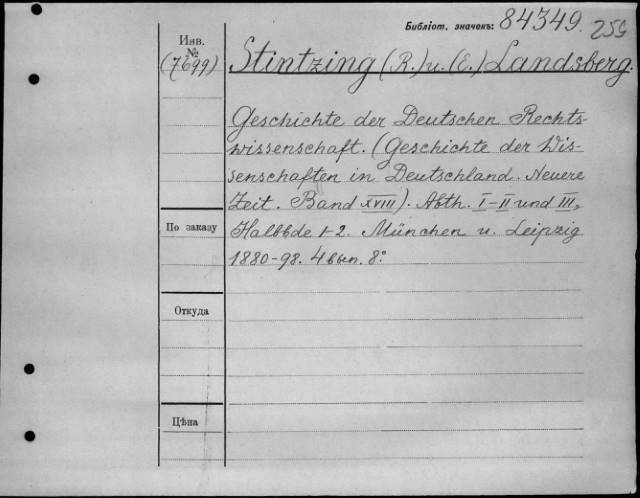 Библіот. значекъ: 84349. 255
Инв. №
(7699) Stintzing (R.) u. (E.) Landsberg.
Geschichte der Deutschen Rechts-
wissenschaft. (Geschichte der Wis-
senschaften in Deutschland. Neuere
Zeit. Band XVIII). Abth. I-II und III,
По заказу
Halbbde 1-2. München u. Leipzig
1880-98. 4 вып. 8°
Откуда
Цѣна